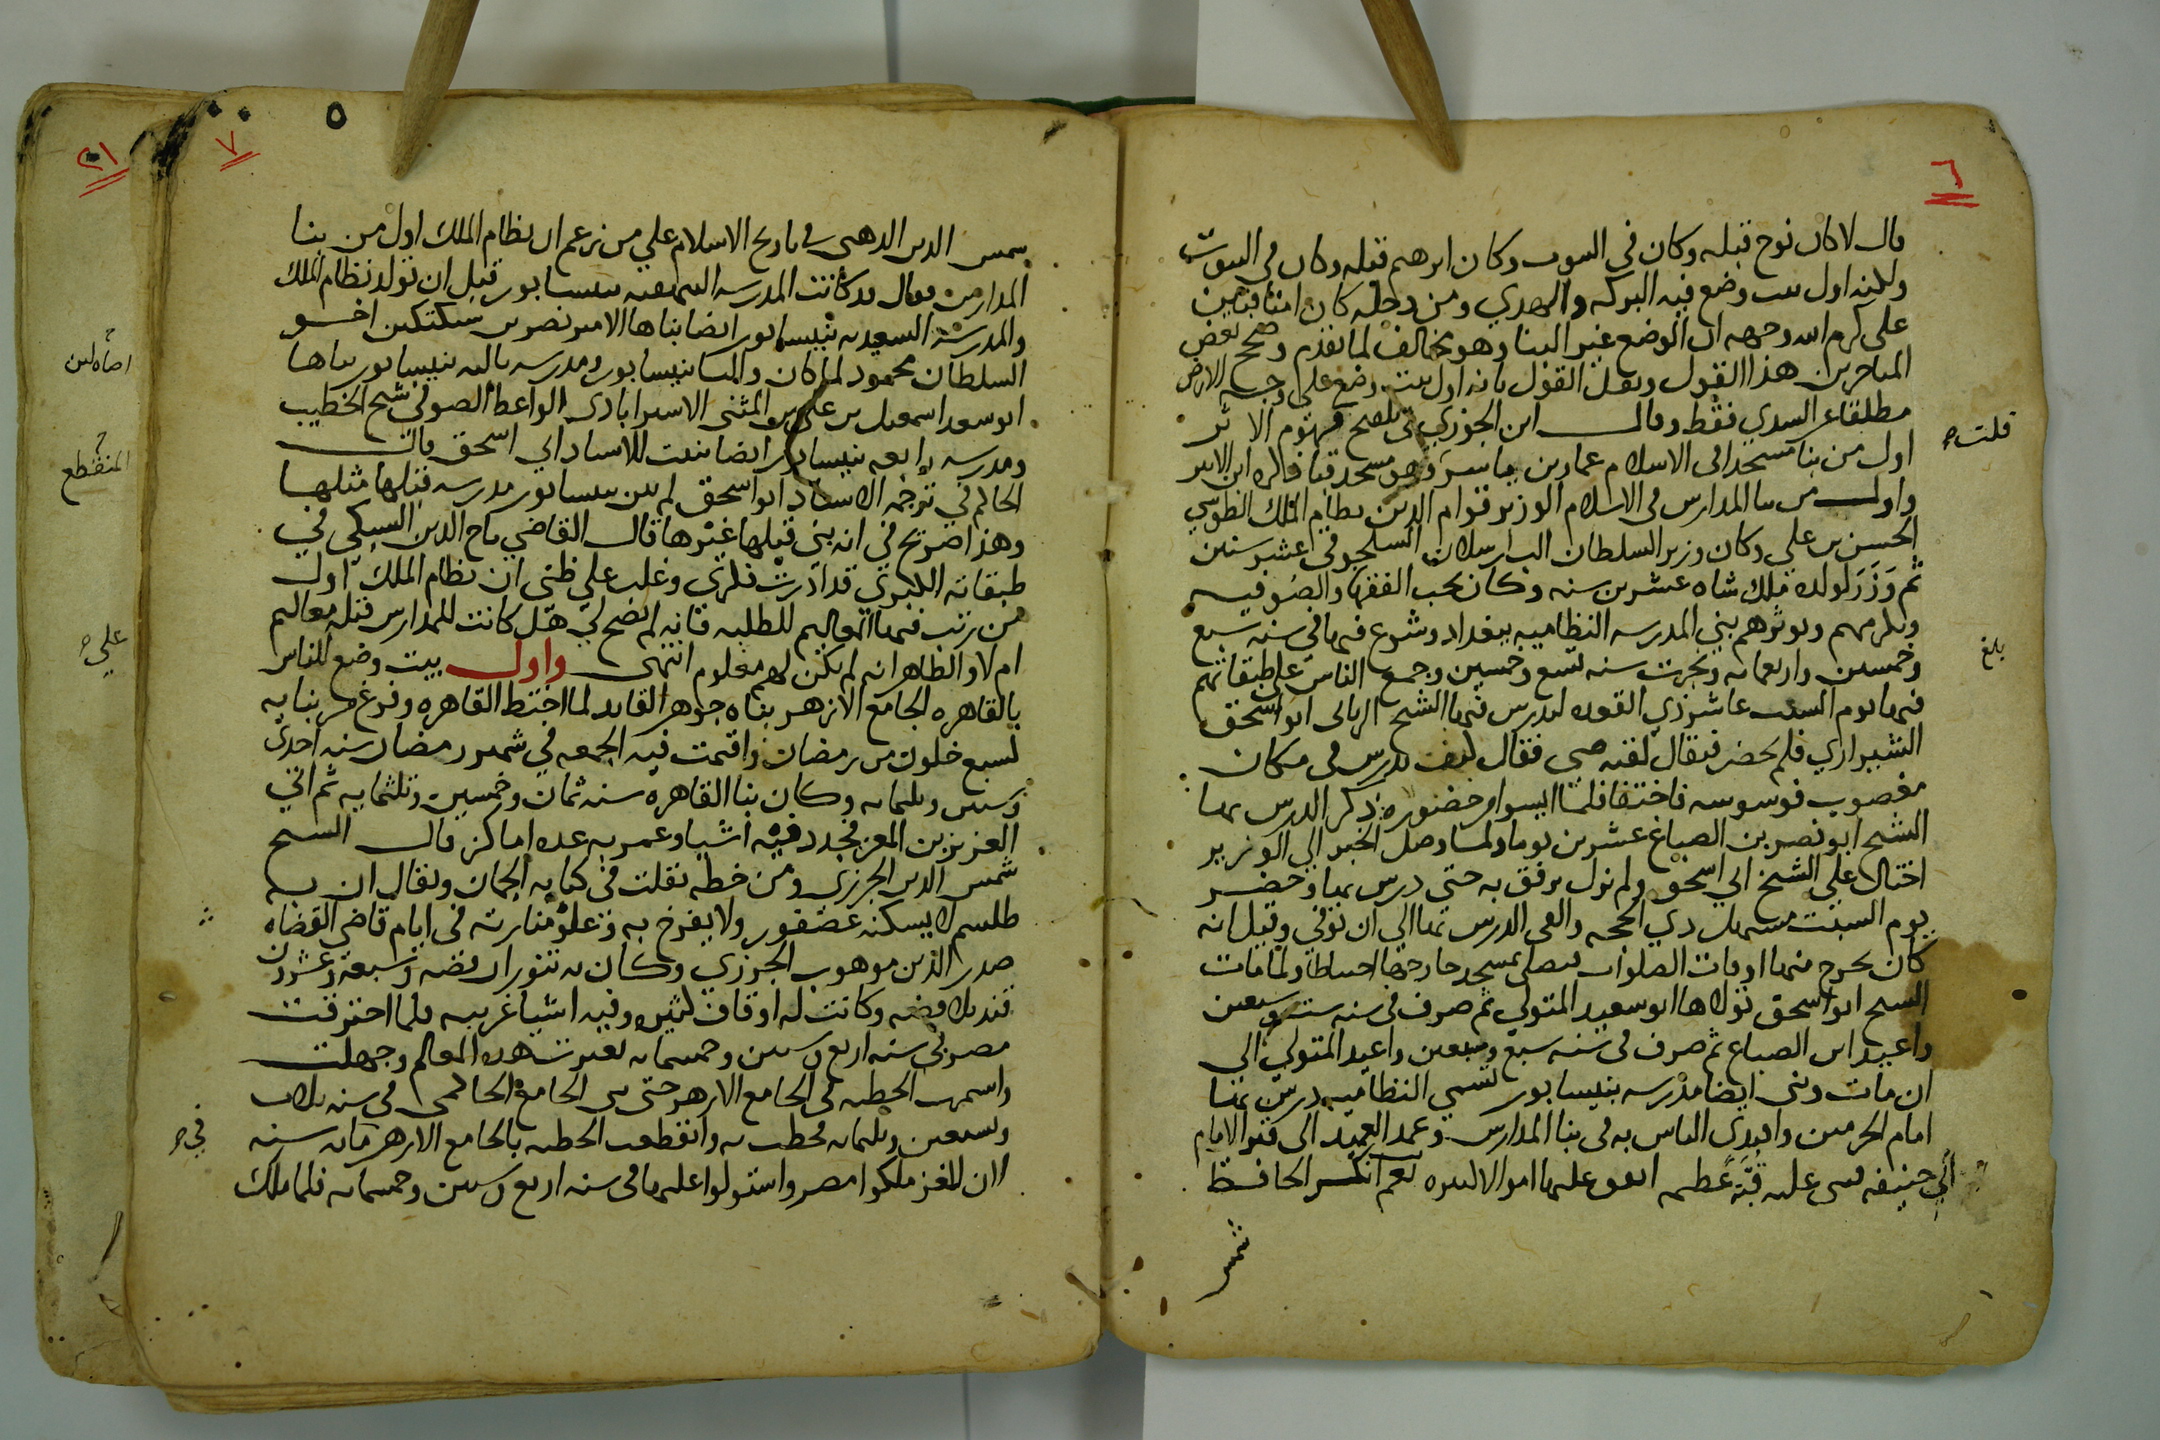 ٦
قال لا كان نوح قبله وكان في البيوت وكان ابرهيم قبله وكان في البيوت
ولكنه اول بيت وضع فيه البركه والهدي ومن دخله كان امنا فتبين
علي كرم الله وجهه ان الوضع غير البنا وهو مخالف لما تقدم وصحح بعض
المتاخرين هذا القول ونقل القول بانه اول بيت وضع علي وجه الارض
مطلقا عن السدي فقط وقال ابن الجوزي
قلت
اول من بنا مسجدا في الاسلام عمار بن ياسر وهو مسجد قبا ذكره ابن الاثير
واول من بنا المدارس في الاسلام الوزير قوام الدين نظام الملك الطوسي
الحسن بن علي وكان وزير السلطان الب ارسلان السلجوقي عشر سنين
ثم وَزَرَ لولده ملك شاه عشرين سنه وكان يحب الفقها والصوفيه
ويكرمهم ويوثرهم بني المدرسه النظاميه ببغداد وشرع فيها في سنه سبع
بلغ
وخمسين واربعمايه ونجزت سنه تسع وخمسين وجمع الناس علي طبقاتهم
فيها يوم السبت عاشر ذي القعده ليدرس فيها الشيخ ابو اسحق
الشيرازي فلم يحضر فيقال لقيه صبي فقال كيف تدرس في مكان
مغصوب فوسوسه فاختفا فلما ايسوا من حضوره ذكر الدرس بها
الشيخ ابو نصر بن الصباغ عشرين يوما ولما وصل الخبر الي الوزير
احتال علي الشيخ ابي اسحق ولم يزل يرفق به حتي درس بها وحضر
يوم السبت مستهل ذي الحجه والقي الدرس بها الي ان توفي وقيل انه
كان يخرج منها اوقات الصلوات فيصلي بمسجد خارجها احتياطا ولما مات
الشيخ ابو اسحق تولاها ابو سعيد المتولي ثم صرف في سنه ست وسبعين
واعيد ابن الصباغ ثم صرف في سنه سبع وسبعين واعيد المتولي الي
ان مات وبني ايضا مدرسه بنيسابور تسمي النظاميه درس بها
امام الحرمين واقتدي الناس به في بنا المدارس وعمد العميد الي قبر الامام
ابي حنيفه فبني عليه قبّة عظيمه انفق عليها اموالا كثيره نعم انكر الحافظ
شمس
٧
شمس الدين الذهبي في تاريخ الاسلام علي من زعم ان نظام الملك اول من بنا
المدارس فقال قد كانت المدرسه البيهقيه بنيسابور قبل ان تولد نظام الملك
والمدرسه السعيديه بنيسابور ايضا بناها الامير نصر بن سبكتكين اخو
السلطان محمود لما كان واليا بنيسابور ومدرسه ثالثه بنيسابور بناها
ابو سعد اسمعيل بن علي بن المثني الاسترابادي الواعظ الصوفي شيخ الخطيب
ومدرسه رابعه بنيسابور ايضا بنيت للاستاد ابي اسحق قال
الحاكم في ترجمه الاستاد ابو اسحق لم يبن بنيسابور مدرسه قبلها مثلها
وهذا صريح في انه بني قبلها غيرها قال القاضي تاج الدين السبكي في
طبقاته الكبري قد ادرت فكري وغلب علي ظني ان نظام الملك اول
من رتب فيها المعاليم للطلبه فانه لم يتضح لي هل كانت للمدارس قبله معاليم
ام لا والظاهر انه لم يكن لهم معلوم انتهي واول بيت وضع للناس
بالقاهره الجامع الازهر بناه جوهر القايد لما اختط القاهره وفرغ من بنايه
لسبع خلون من رمضان واقيمت فيه الجمعه في شهر رمضان سنه احدي
وستين وثلثمايه وكان بنا القاهره سنه ثمان وخمسين وثلثمايه ثم اتي
العزيز بن المعز فجدد فيه اشيا وعمر به عده اماكن قال الشيخ
شمس الدين الجزري ومن خطه نقلت في كتابه الجمان ويقال ان به
طلسم لا يسكنه عصفور ولا يفرخ به وعلو منارته في ايام قاضي القضاه
صدر الدين موهوب الجزري وكان به تنوران فضه وسبعة وعشرون
قنديلا فضه وكانت له اوقاف كثيره وفيه اشيا غريبه فلما احترقت
مصر في سنه اربع وستين وخمسمايه تغيرت هذه المعالم وجهلت
واستمرت الخطبه في الجامع الازهر حتي بني الجامع الحاكمي في سنه ثلاث
وتسعين وثلثمايه فخطب به وانقطعت الخطبه بالجامع الازهر مايه سنه
في
الان الغز ملكوا مصر واستولوا عليها في سنه اربع وستين وخمسمايه فلما ملك
٢١
المنقطع
علي